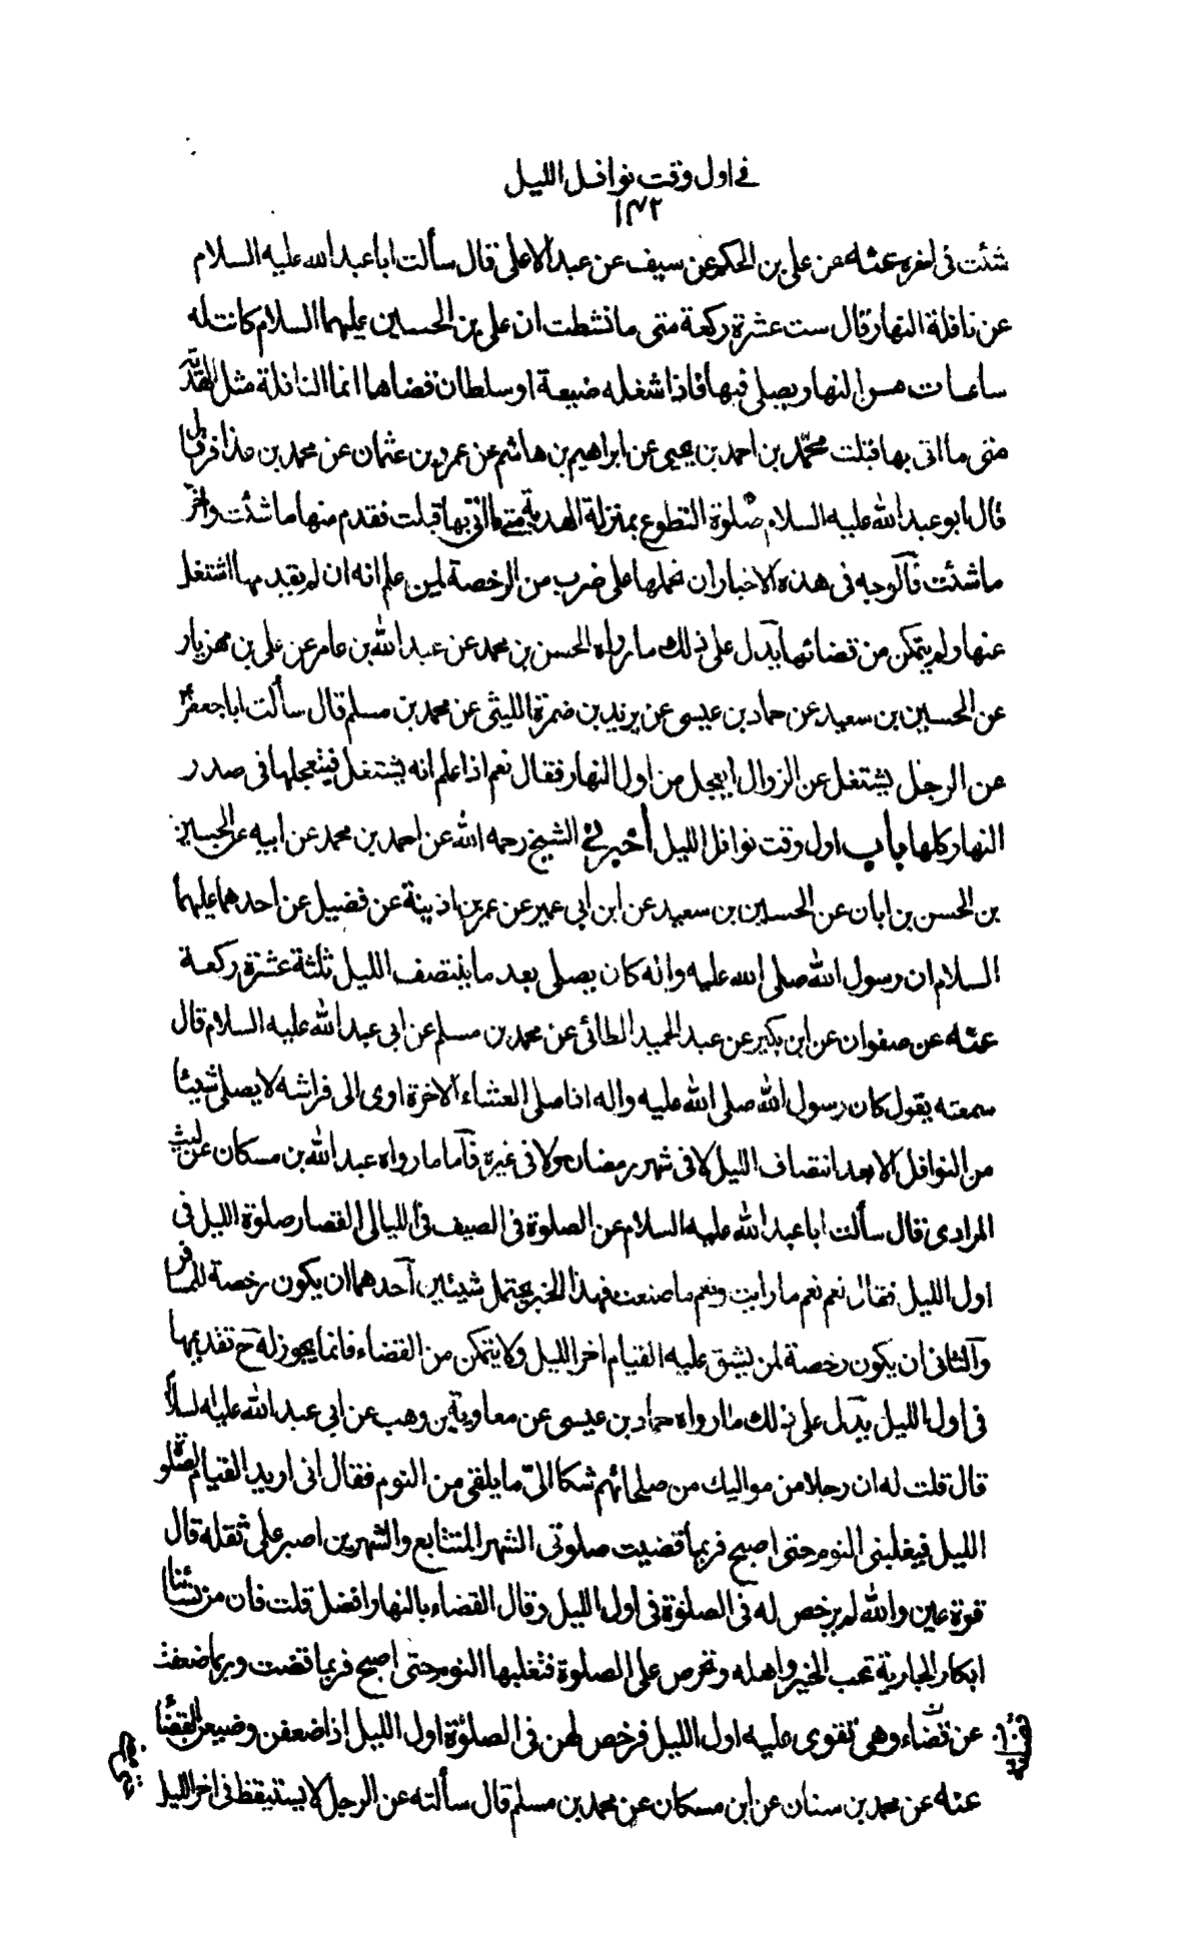 في اول وقت نوافل الليل
١٤٢
شئت في اخره عنه عن علي بن الحكم عن سيف عن عبد الاعلى قال سألت ابا عبد الله عليه السلام
عن نافلة النهار قال ست عشرة ركعة متى ما نشطت ان علي بن الحسين عليهما السلام كانت له
ساعات من النهار يصلي فيها فاذا شغله ضيعة او سلطان قضاها انما النافلة مثل الهدية
متى ما اتى بها قبلت محمّد بن احمد بن يحيى عن ابراهيم بن هاشم عن عمرو بن عثمان عن محمد بن عذافر قال
قال ابو عبد الله عليه السلام صلوة التطوع بمنزلة الهدية متى ما اتى بها قبلت فقدم منها ما شئت واخر
ما شئت فآلوجه في هذه الاخبار ان نحملها على ضرب من الرخصة لمن علم انه ان لم يقدمها اشتغل
عنها ولم يتمكن من قضائها يدل على ذلك ما رواه الحسن بن محمد عن عبد الله بن عامر عن علي بن مهزيار
عن الحسين بن سعيد عن حماد بن عيسى عن يزيد بن ضمرة الليثي عن محمد بن مسلم قال سألت ابا جعفر ع
عن الرجل يشتغل عن الزوال ايعجل من اول النهار فقال نعم اذا علم انه يشتغل فيتعجلها في صدر
النهار كلها باب اول وقت نوافل الليل أخبرني الشيخ رحمه الله عن احمد بن محمد عن ابيه عن الحسين
بن الحسن بن ابان عن الحسين بن سعيد عن ابن ابي عمير عن عمر بن اذينة عن فضيل عن احدهما عليهما
السلام ان رسول الله صلى الله عليه واله كان يصلي بعد ما ينتصف الليل ثلثة عشرة ركعة
عنه عن صفوان عن ابن بكير عن عبد الحميد الطائي عن محمد بن مسلم عن ابي عبد الله عليه السلام قال
سمعته يقول كان رسول الله صلى الله عليه واله اذا صلى العشاء الاخرة اوى الى فراشه لا يصلي شيئا
من النوافل الا بعد انتصاف الليل لا في شهر رمضان ولا في غيره فآما ما رواه عبد الله بن مسكان عن ليث
المرادي قال سألت ابا عبد الله عليه السلام عن الصلوة في الصيف في الليالي القصار صلوة الليل في
اول الليل فقال نعم نعم ما رايت ونعم ما صنعت فهذا الخبر يحتمل شيئين آحدهما ان يكون رخصة للمسافر
وآلثاني ان يكون رخصة لمن يشق عليه القيام اخر الليل ولا يتمكن من القضاء فانما يجوز له ح تقديمها
في اول الليل يدل على ذلك ما رواه حماد بن عيسى عن معاوية بن وهب عن ابي عبد الله عليه السلام
قال قلت له ان رجلا من مواليك من صلحائهم شكا اليّ ما يلقى من النوم فقال اني اريد القيام لصلوة
الليل فيغلبني النوم حتى اصبح فربما قضيت صلوتي الشهر المتتابع والشهرين اصبر على ثقله قال
قرة عين والله لم يرخص له في الصلوة في اول الليل وقال القضاء بالنهار افضل قلت فان من نسائنا
ابكارا الجارية تحب الخير واهله وتحرص على الصلوة فتغلبها النوم حتى اصبح فربما قضت وربما ضعفت
عن قضاء وهي تقوى عليه اول الليل فرخص لهن في الصلوة اول الليل اذا ضعفن وضيعن القضاء
عنه عن محمد بن سنان عن ابن مسكان عن محمد بن مسلم قال سألته عن الرجل لا يستيقظ في اخر الليل